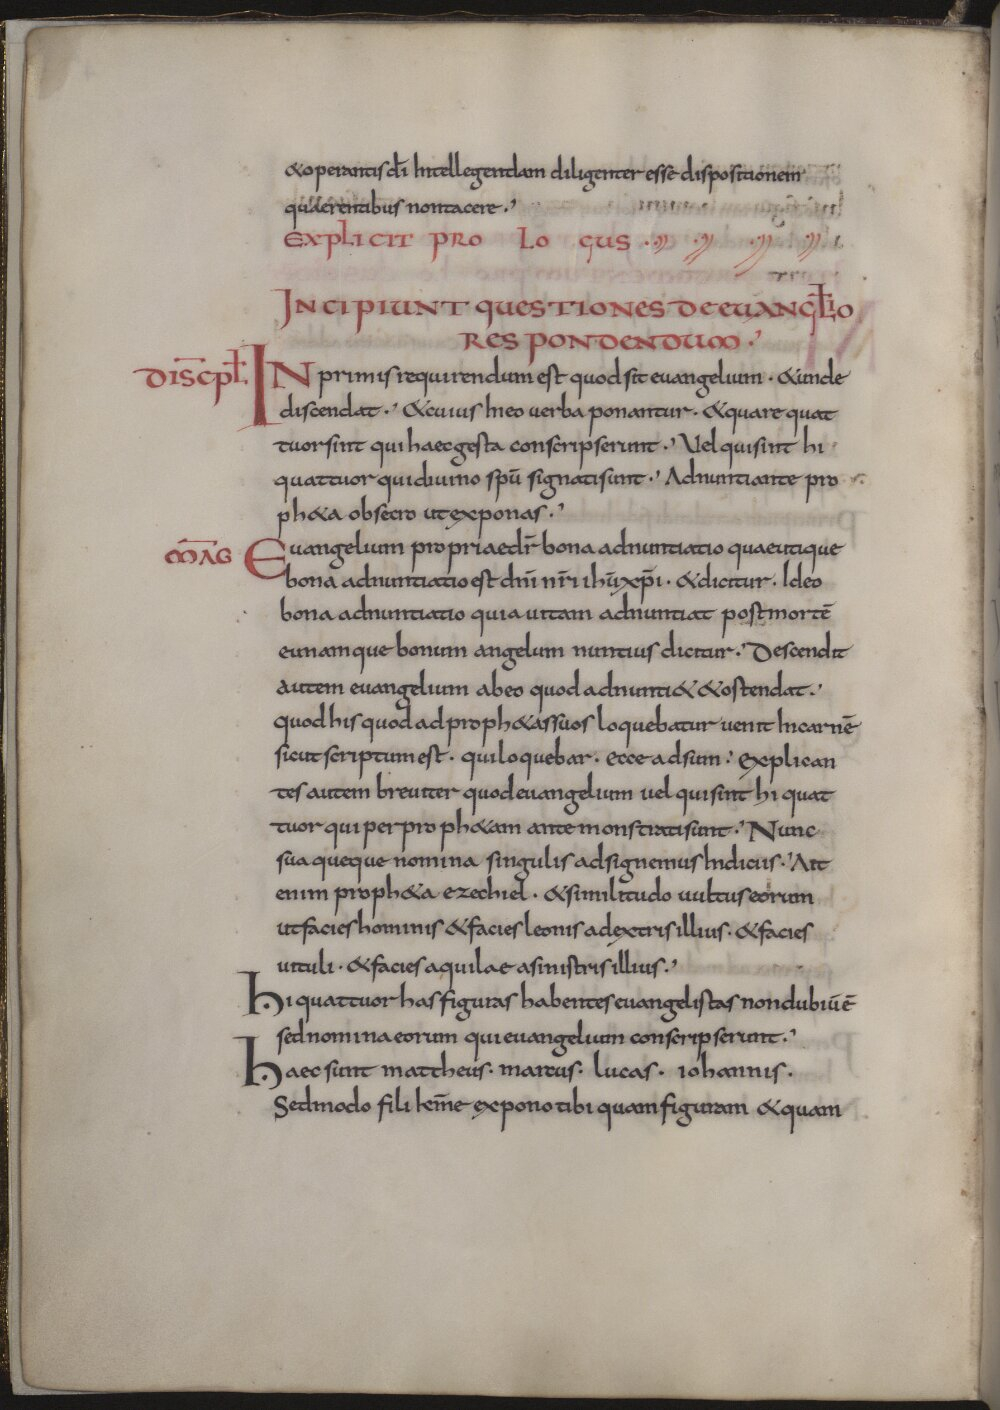 &operantis dī Intellegendam diligenter esse dispositionem
quaerentibus non tacere.
EXPLICIT PRO LO GUS
INCIPIUNT QUESTIONES DE EUANGL̄IO
RESPONDENDUM.
DISC̄PL̄ IN primis requirendum est quod sit euangelium · &unde
discendat · &cuius In eo uerba ponantur · &quare quat
tuor sint qui haec gesta conscripserunt · Uel qui sint hi
quattuor qui diuino spū signati sunt · Adnuntiante pro
ph&a obsecro ut exponas ·
MĀG Euangelium propriae dr̄ bona adnuntiatio quae utique
bona adnuntiatio est dnī nr̄i ihū xp̄i · &dicitur · Ideo
bona adnuntiatio quia uitam adnuntiat post mortē
eu namque bonum angelum nuntius dicitur · Descendit
autem euangelium ab eo quod adnunti& &ostendat ·
quod his quod ad proph&as suos loquebatur uenit In carnē
sicut scriptum est · qui loquebar · ecce adsum · explican
tes autem breuiter quod euangelium uel qui sint hi quat
tuor qui per proph&am ante monstrati sunt · Nunc
sua queque nomina singulis adsignemus Indiciis · Ait
enim proph&a ezechiel · &similitudo uultus eorum
ut facies hominis &facies leonis a dextris illius · &facies
uituli · &facies aquilae a sinistris illius ·
Hi quattuor has figuras habentes euangelistas non dubiū ē
sed nomina eorum qui euangelium conscripserunt ·
Haec sunt mattheus · marcus · lucas · iohannis ·
Sed modo fili kem̄e expono tibi quam figuram &quam